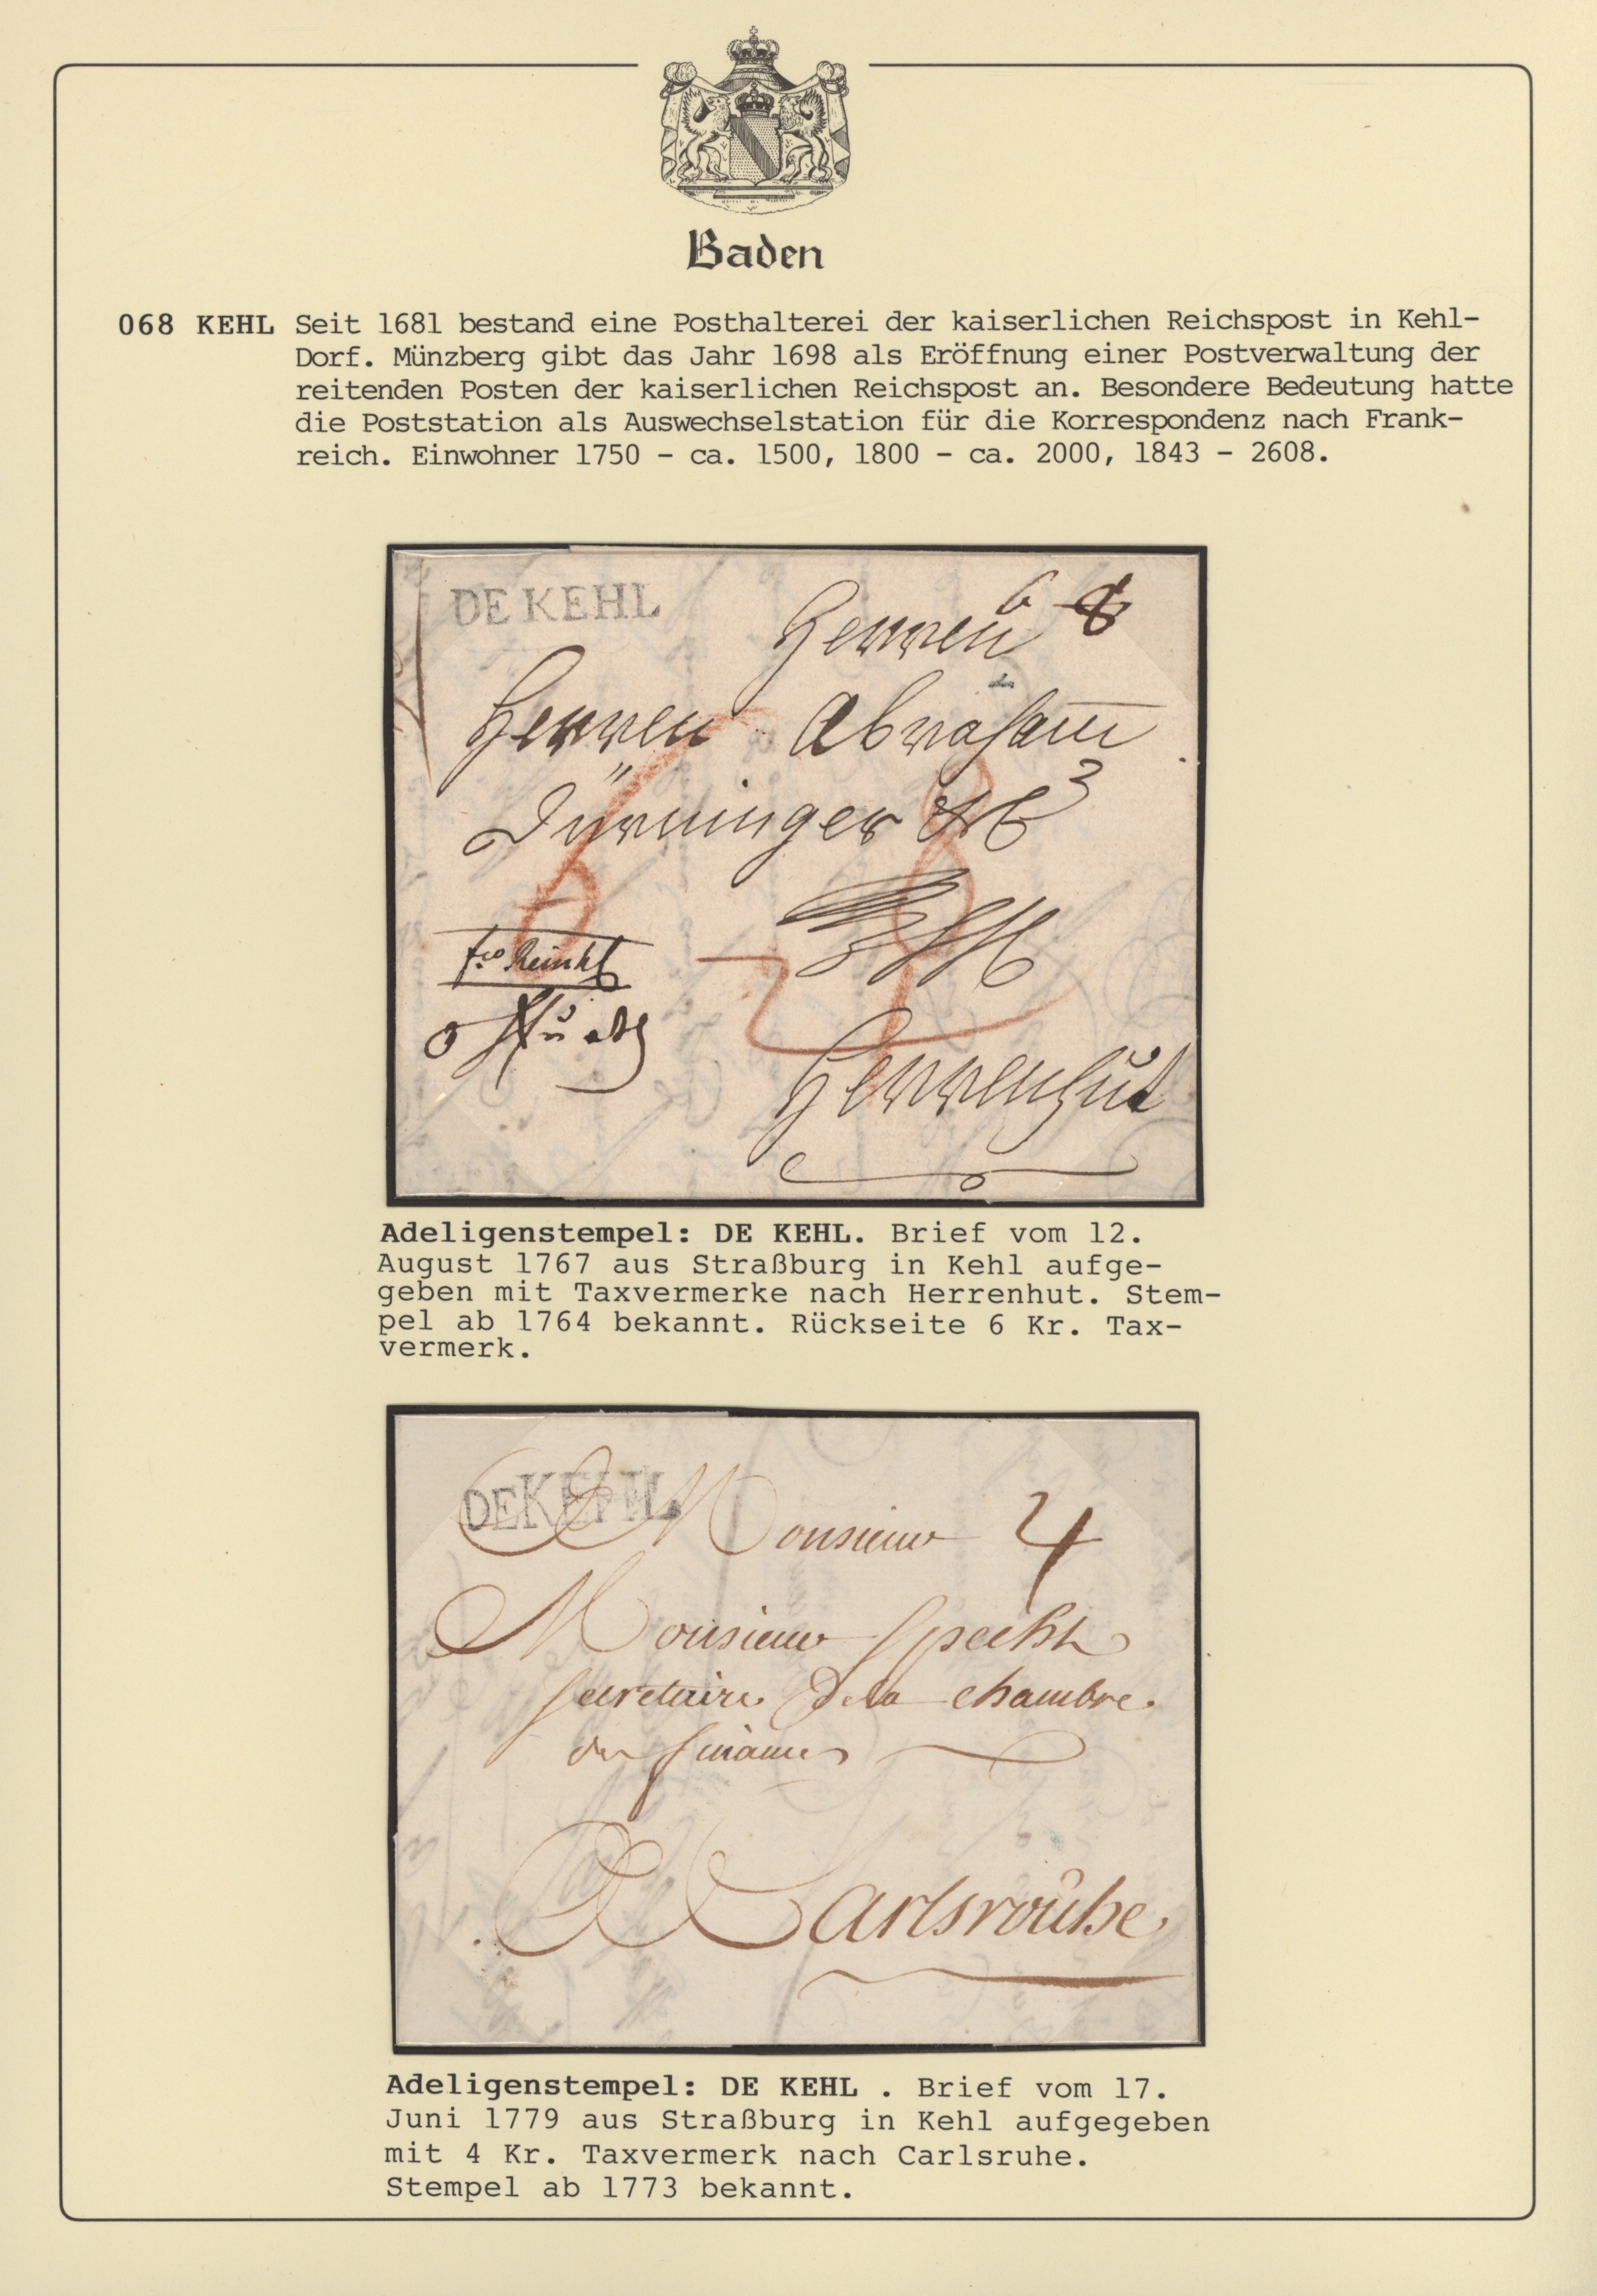 Baden
068 KEHL Seit 1681 bestand eine Posthalterei der kaiserlichen Reichspost in Kehl-
Dorf. Münzberg gibt das Jahr 1698 als Eröffnung einer Postverwaltung der
reitenden Posten der kaiserlichen Reichspost an. Besondere Bedeutung hatte
die Poststation als Auswechselstation für die Korrespondenz nach Frank-
reich. Einwohner 1750 - ca. 1500, 1800 - ca. 2000, 1843 - 2608.
DE KEHL
6 8
Herren
Herren Abraham
Dürninger
Herrenhut
Adeligenstempel: DE KEHL. Brief vom 12.
August 1767 aus Straßburg in Kehl aufge-
geben mit Taxvermerke nach Herrenhut. Stem-
pel ab 1764 bekannt. Rückseite 6 Kr. Tax-
vermerk.
DE KEHL
Monsieur 4
Monsieur Specht
secretaire de la chambre
finances
Carlsrouhe
Adeligenstempel: DE KEHL . Brief vom 17.
Juni 1779 aus Straßburg in Kehl aufgegeben
mit 4 Kr. Taxvermerk nach Carlsruhe.
Stempel ab 1773 bekannt.